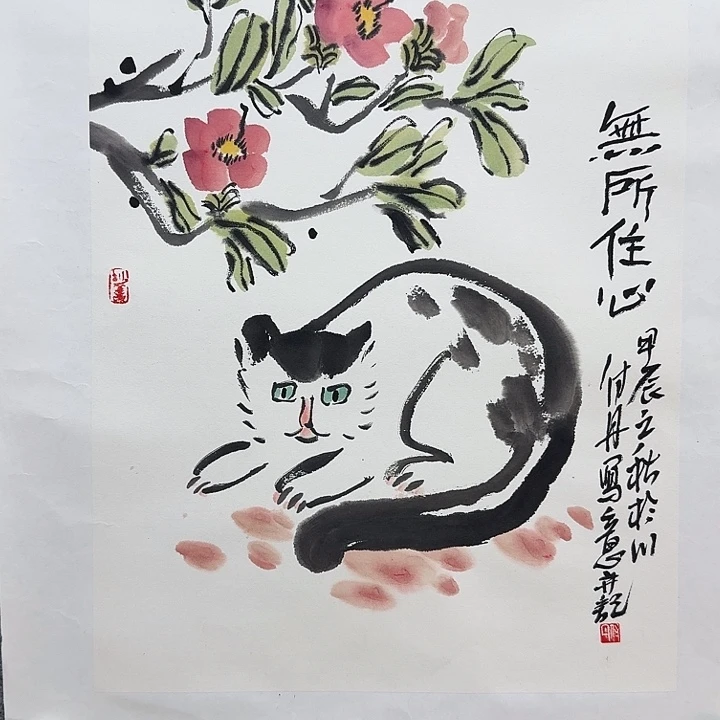 無所住心
甲辰立秋於川
付丹寫意并記